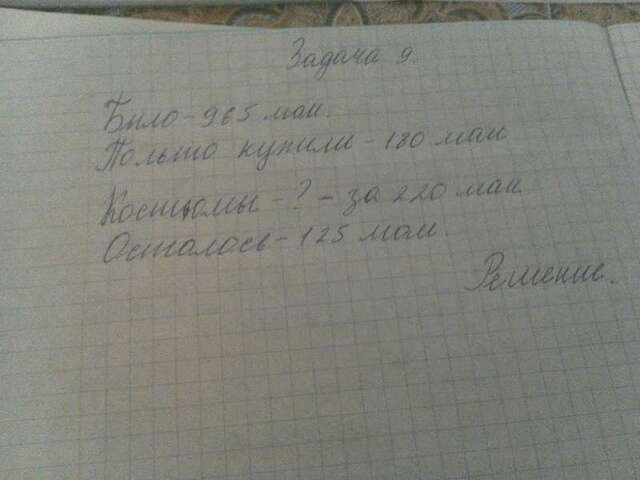 Задача 9.
Было - 965 ман.
Польто купили - 180 ман
Костюмы - ? - за 220 ман
Осталось - 125 ман.
Решение.